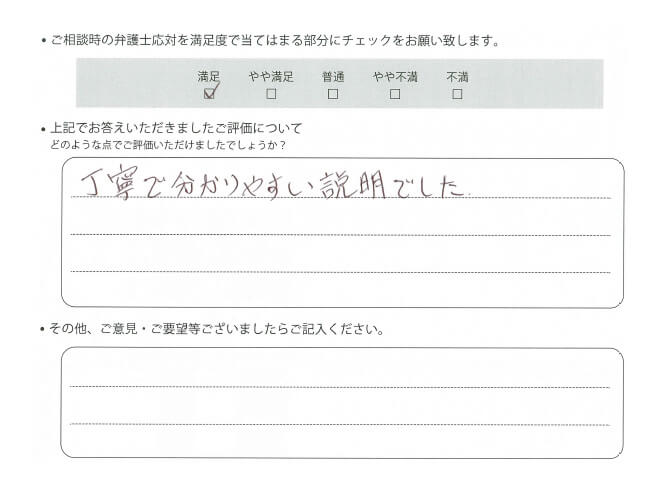 • ご相談時の弁護士応対を満足度で当てはまる部分にチェックをお願い致します。
満足 やや満足 普通 やや不満 不満
☑ □ □ □ □
• 上記でお答えいただきましたご評価について
どのような点でご評価いただけましたでしょうか？
丁寧で分かりやすい説明でした.
• その他、ご意見・ご要望等ございましたらご記入ください。